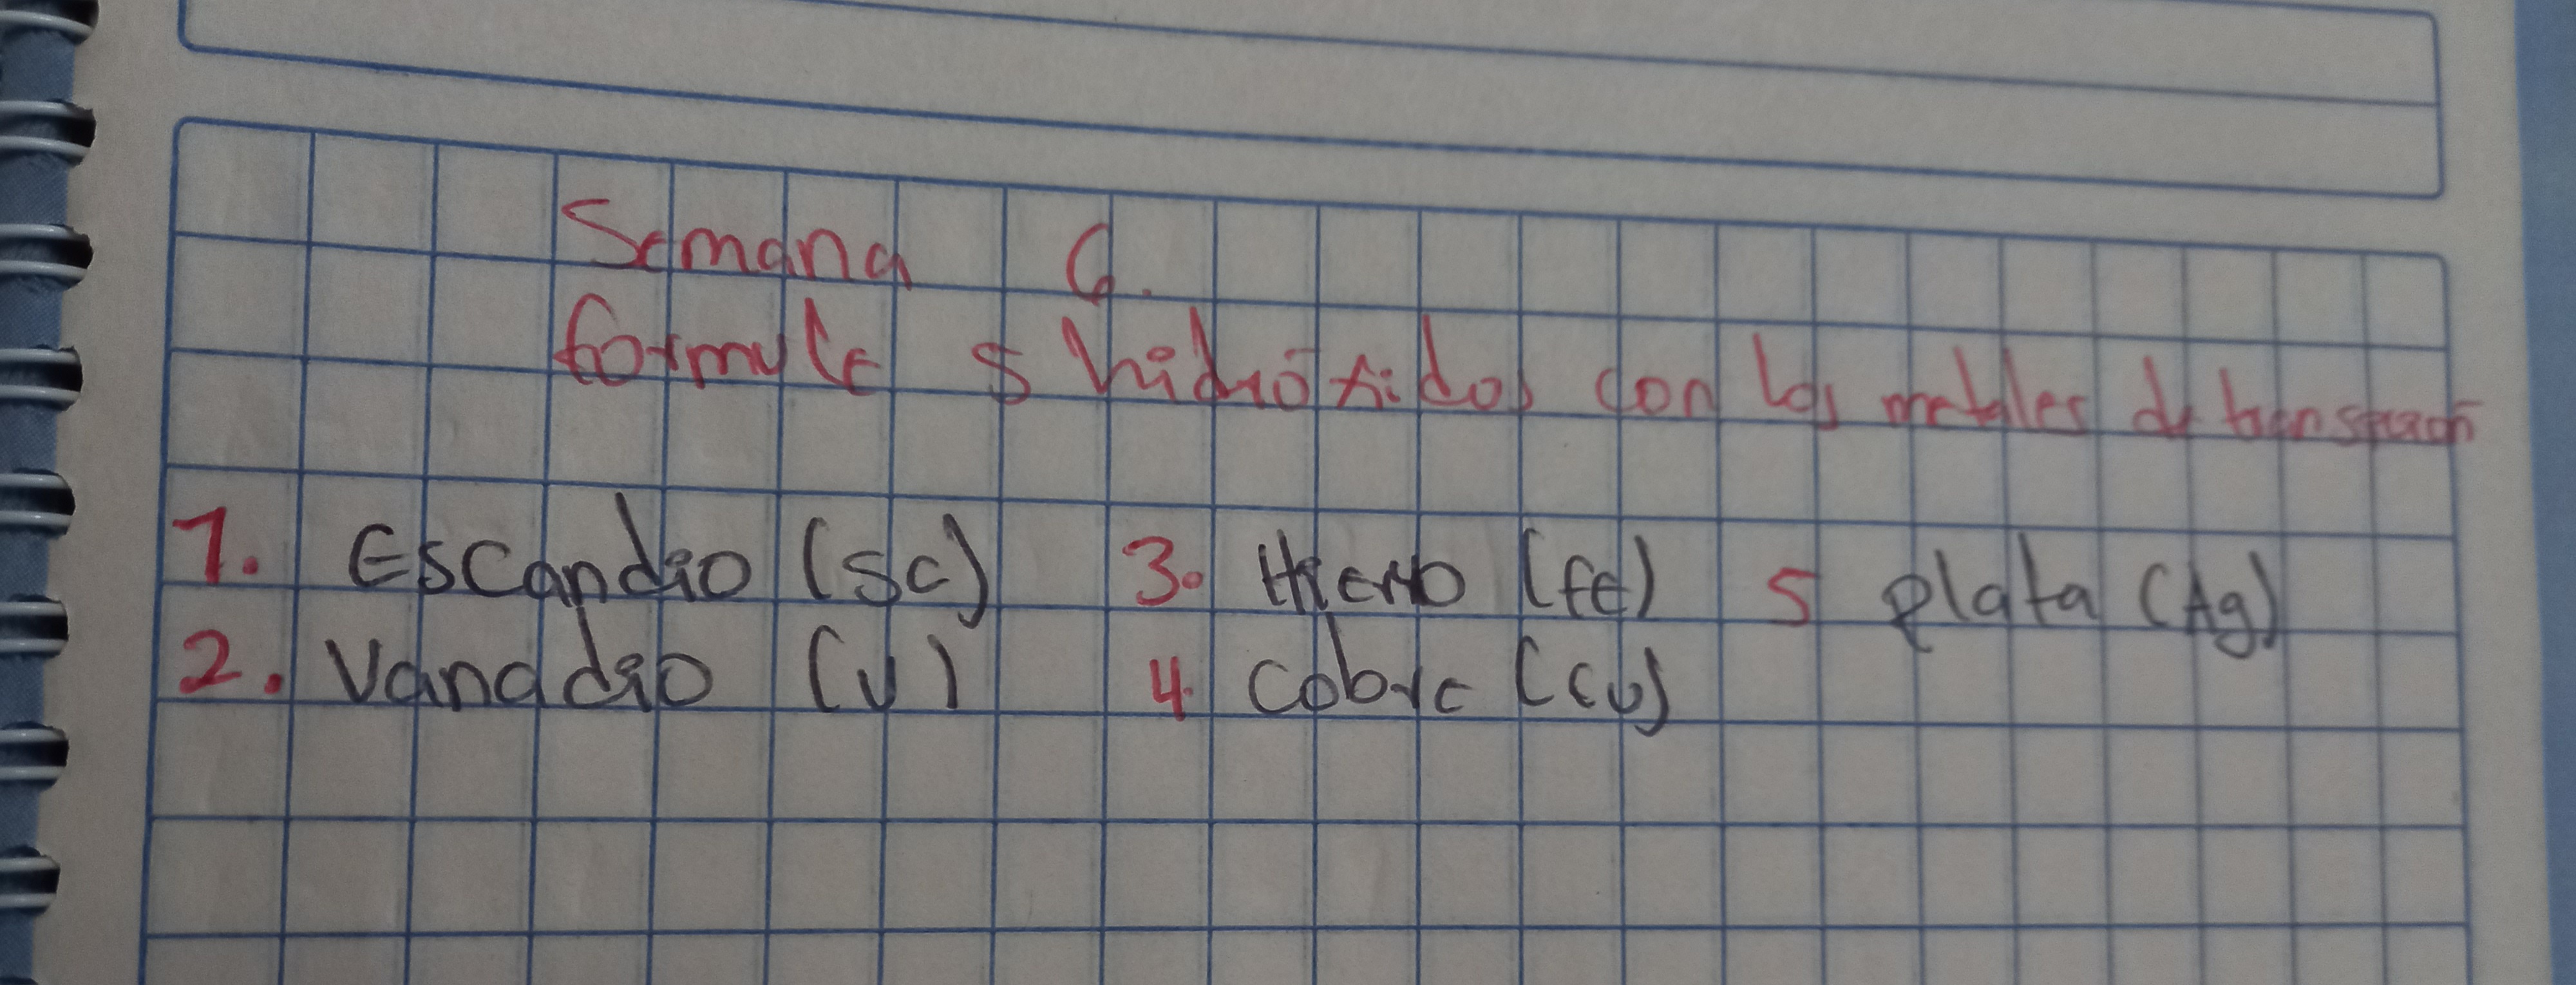 Semana 6.
formule 5 hidróxidos con los metales de transición
1. Escandio (Sc) 3. Hierro (fe) 5 plata (Ag)
2. Vanadio (V) 4. Cobre (Cu)